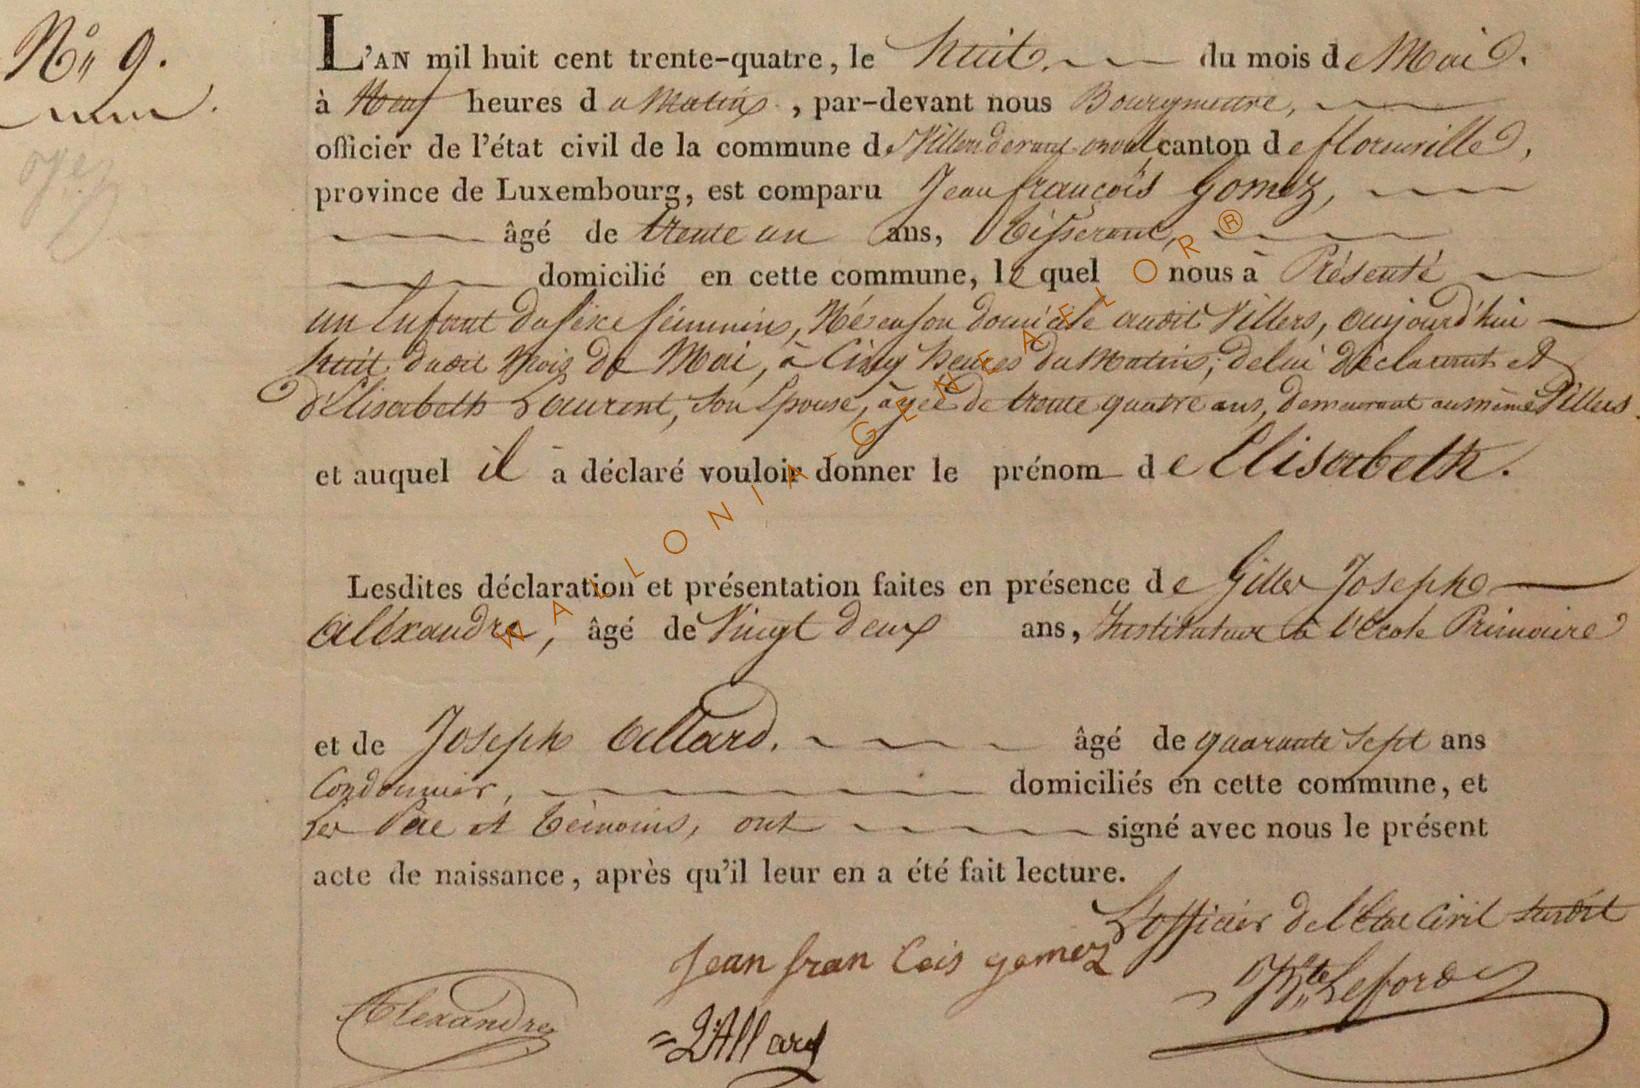 N° 9.
L'AN mil huit cent trente-quatre, le huit. du mois de Mai.
à Neuf heures du Matin, par-devant nous Bourgmestre,
officier de l'état civil de la commune de Villers devant orval canton de florenville,
province de Luxembourg, est comparu Jean françois Gomez,
âgé de trente un ans, tisserant,
domicilié en cette commune, le quel nous à Présenté
un Enfant du séxe féminin, Née en son domicile audit Villers, aujourd'hui
huit dudit Mois de Mai, à Cinq heures du Matin, de lui déclarant et
d'Elisabeth Laurent, son Epouse, âgée de trente quatre ans, demeurant au même Villers.
et auquel il à déclaré vouloir donner le prénom de Elisabeth.
Lesdites déclaration et présentation faites en présence de Gilles Joseph
Aléxandre, âgé de Vingt deux ans, Instituteur à l'école Primaire
et de Joseph Allard. âgé de quarante sept ans
Cordonnier, domiciliés en cette commune, et
les Père et témoins, ont signé avec nous le présent
acte de naissance, après qu'il leur en a été fait lecture.
L'officier de l'état Civil susdit
Jean fran Cois gomez
Alexandre
Allard
WALLONIA-GENEAFLOR®